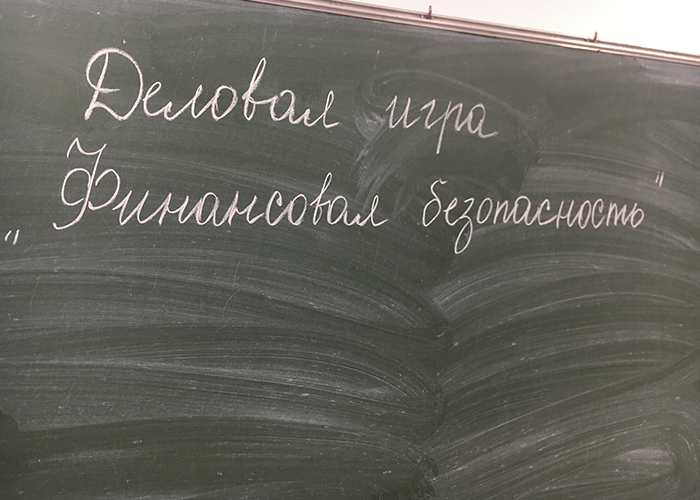 Деловая игра
„Финансовая безопасность"